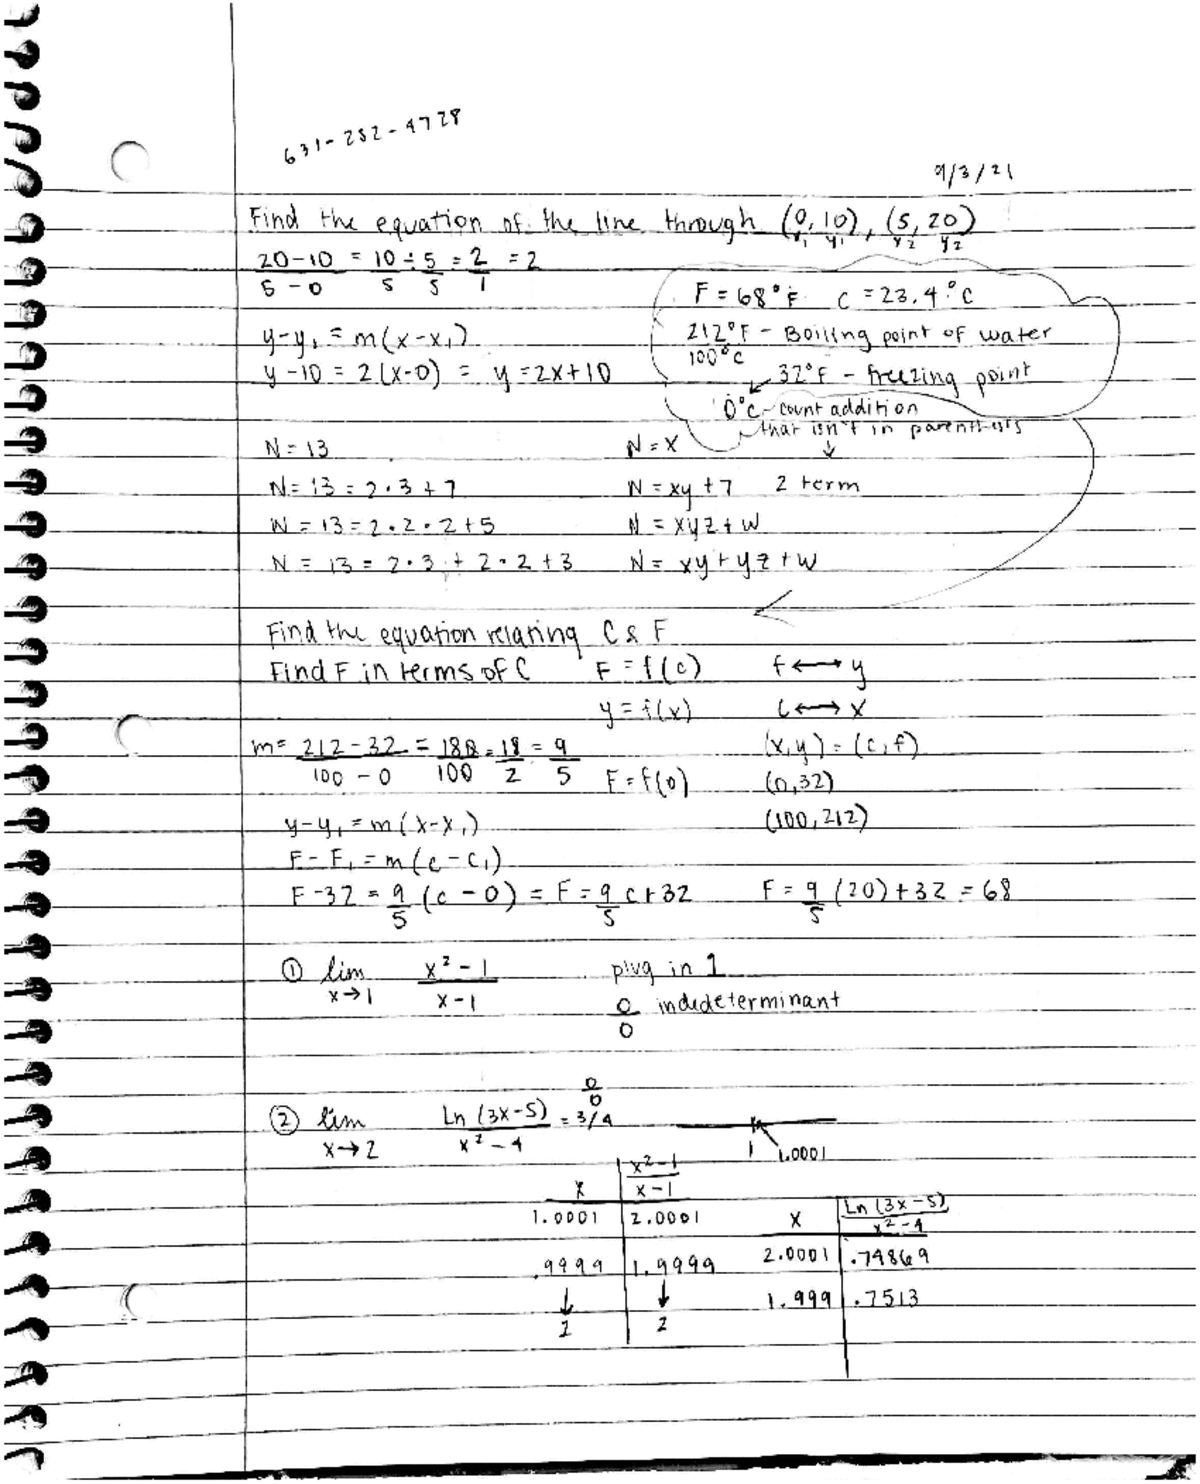 631-252-4728
9/3/21
Find the equation of the line through (0, 10), (5, 20)
x₁ y₁ x₂ y₂
20-10 / 5-0 = 10/5 ÷ 5/5 = 2/1 = 2
F = 68°F C = 23.4°C
y-y₁ = m(x-x₁)
212°F - Boiling point of water
100°C
y-10 = 2(x-0) = y=2x+10
32°F - freezing point
0°C - count addition
that isn't in parenthesis
N = 13 N = x
N = 13 = 2·3+7 N = xy+7 2 term
N = 13 = 2·2·2+5 N = xyz+w
N = 13 = 2·3+2·2+3 N = xy+yz+w
Find the equation relating C & F
Find F in terms of C F = f(c) f ⟷ y
y = f(x) C ⟷ x
m = 212-32 / 100-0 = 180/100 = 18/2 = 9/5 (x,y) = (c,f)
F = f(0) (0,32)
y-y₁ = m(x-x₁) (100,212)
F-F₁ = m(c-c₁)
F-32 = 9/5 (c-0) = F = 9/5 c+32 F = 9/5 (20)+32 = 68
① lim x→1 x²-1 / x-1 plug in 1
0/0 indedeterminant
0/0
② lim x→2 Ln (3x-5) / x²-4 = 3/4
1 1.0001
x x²-1 / x-1
1.0001 2.0001
.9999 1.9999
↓ ↓
1 2
x Ln (3x-5) / x²-4
2.0001 .74869
1.999 .7513